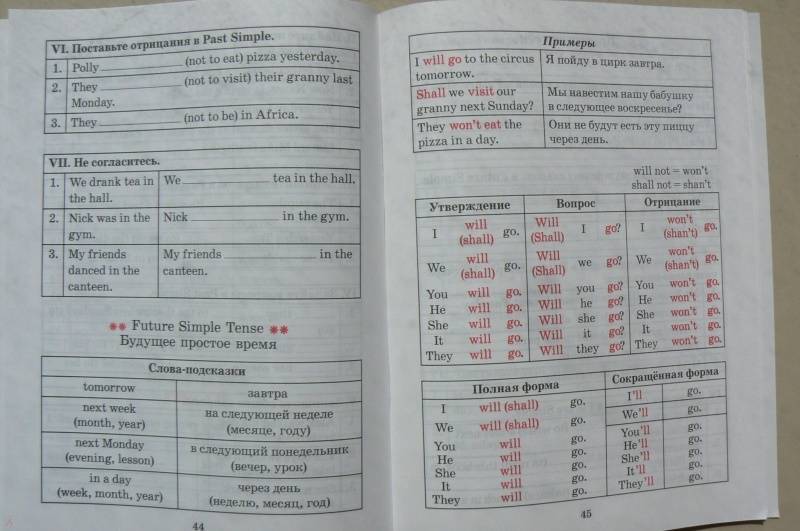 VI. Поставьте отрицания в Past Simple.
1. Polly (not to eat) pizza yesterday.
2. They (not to visit) their granny last
Monday.
3. They (not to be) in Africa.
VII. Не согласитесь.
1. We drank tea in We tea in the hall.
the hall.
2. Nick was in the Nick in the gym.
gym.
3. My friends My friends in the
danced in the canteen.
canteen.
** Future Simple Tense **
Будущее простое время
Слова-подсказки
tomorrow завтра
next week на следующей неделе
(month, year) (месяце, году)
next Monday в следующий понедельник
(evening, lesson) (вечер, урок)
in a day через день
(week, month, year) (неделю, месяц, год)
44
Примеры
I will go to the circus Я пойду в цирк завтра.
tomorrow.
Shall we visit our Мы навестим нашу бабушку
granny next Sunday? в следующее воскресенье?
They won't eat the Они не будут есть эту пиццу
pizza in a day. через день.
will not = won't
shall not = shan't
Утверждение Вопрос Отрицание
I will (shall) go. Will (Shall) I go? I won't (shan't) go.
We will (shall) go. Will (Shall) we go? We won't (shan't) go.
You will go. Will you go? You won't go.
He will go. Will he go? He won't go.
She will go. Will she go? She won't go.
It will go. Will it go? It won't go.
They will go. Will they go? They won't go.
Полная форма Сокращённая форма
I will (shall) go. I'll go.
We will (shall) go. We'll go.
You will go. You'll go.
He will go. He'll go.
She will go. She'll go.
It will go. It'll go.
They will go. They'll go.
45